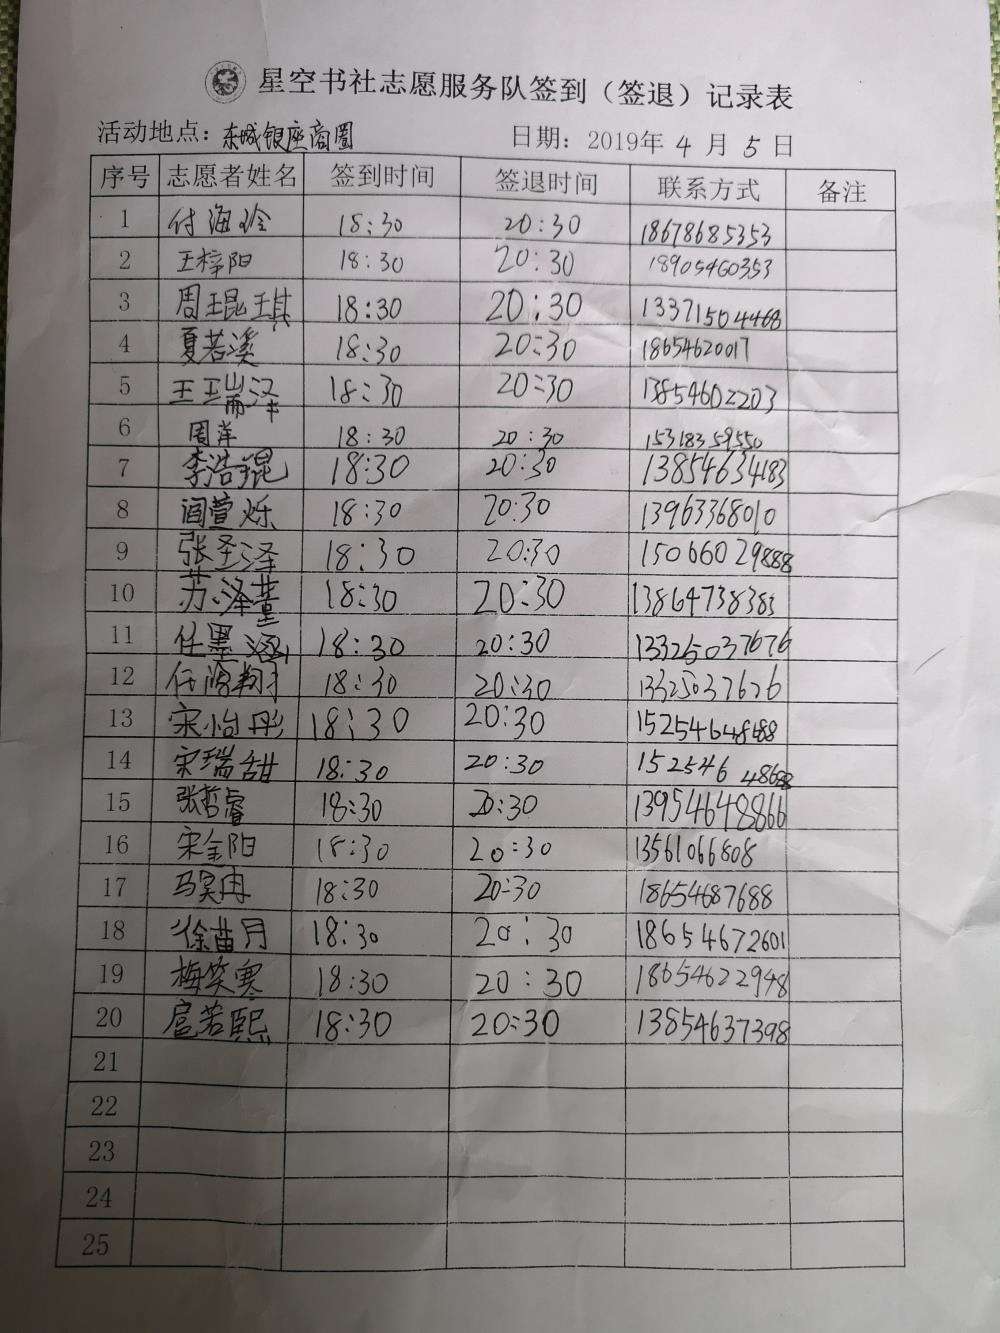 星空书社志愿服务队签到（签退）记录表
活动地点：东城银座商圈 日期：2019年4月5日
序号 志愿者姓名 签到时间 签退时间 联系方式 备注
1 付海玲 18:30 20:30 18678685353
2 王梓阳 18:30 20:30 18905460353
3 周琨琪 18:30 20:30 13371504468
4 夏若溪 18:30 20:30 18654620017
5 王瑞泽 18:30 20:30 13854602203
6 周洋 18:30 20:30 15318359550
7 李浩琨 18:30 20:30 13854634183
8 阎萱烁 18:30 20:30 13963368010
9 张圣泽 18:30 20:30 15066029888
10 苏泽萱 18:30 20:30 13864738383
11 任墨涵 18:30 20:30 13325037676
12 任鸿翔 18:30 20:30 13325037676
13 宋怡彤 18:30 20:30 15254648488
14 宋瑞甜 18:30 20:30 152546
15 张哲睿 18:30 20:30 13954648866
16 宋金阳 18:30 20:30 13561066808
17 马昊冉 18:30 20:30 18654687688
18 徐苗月 18:30 20:30 18654672601
19 梅笑寒 18:30 20:30 18654622948
20 扈若熙 18:30 20:30 13854637398
21
22
23
24
25